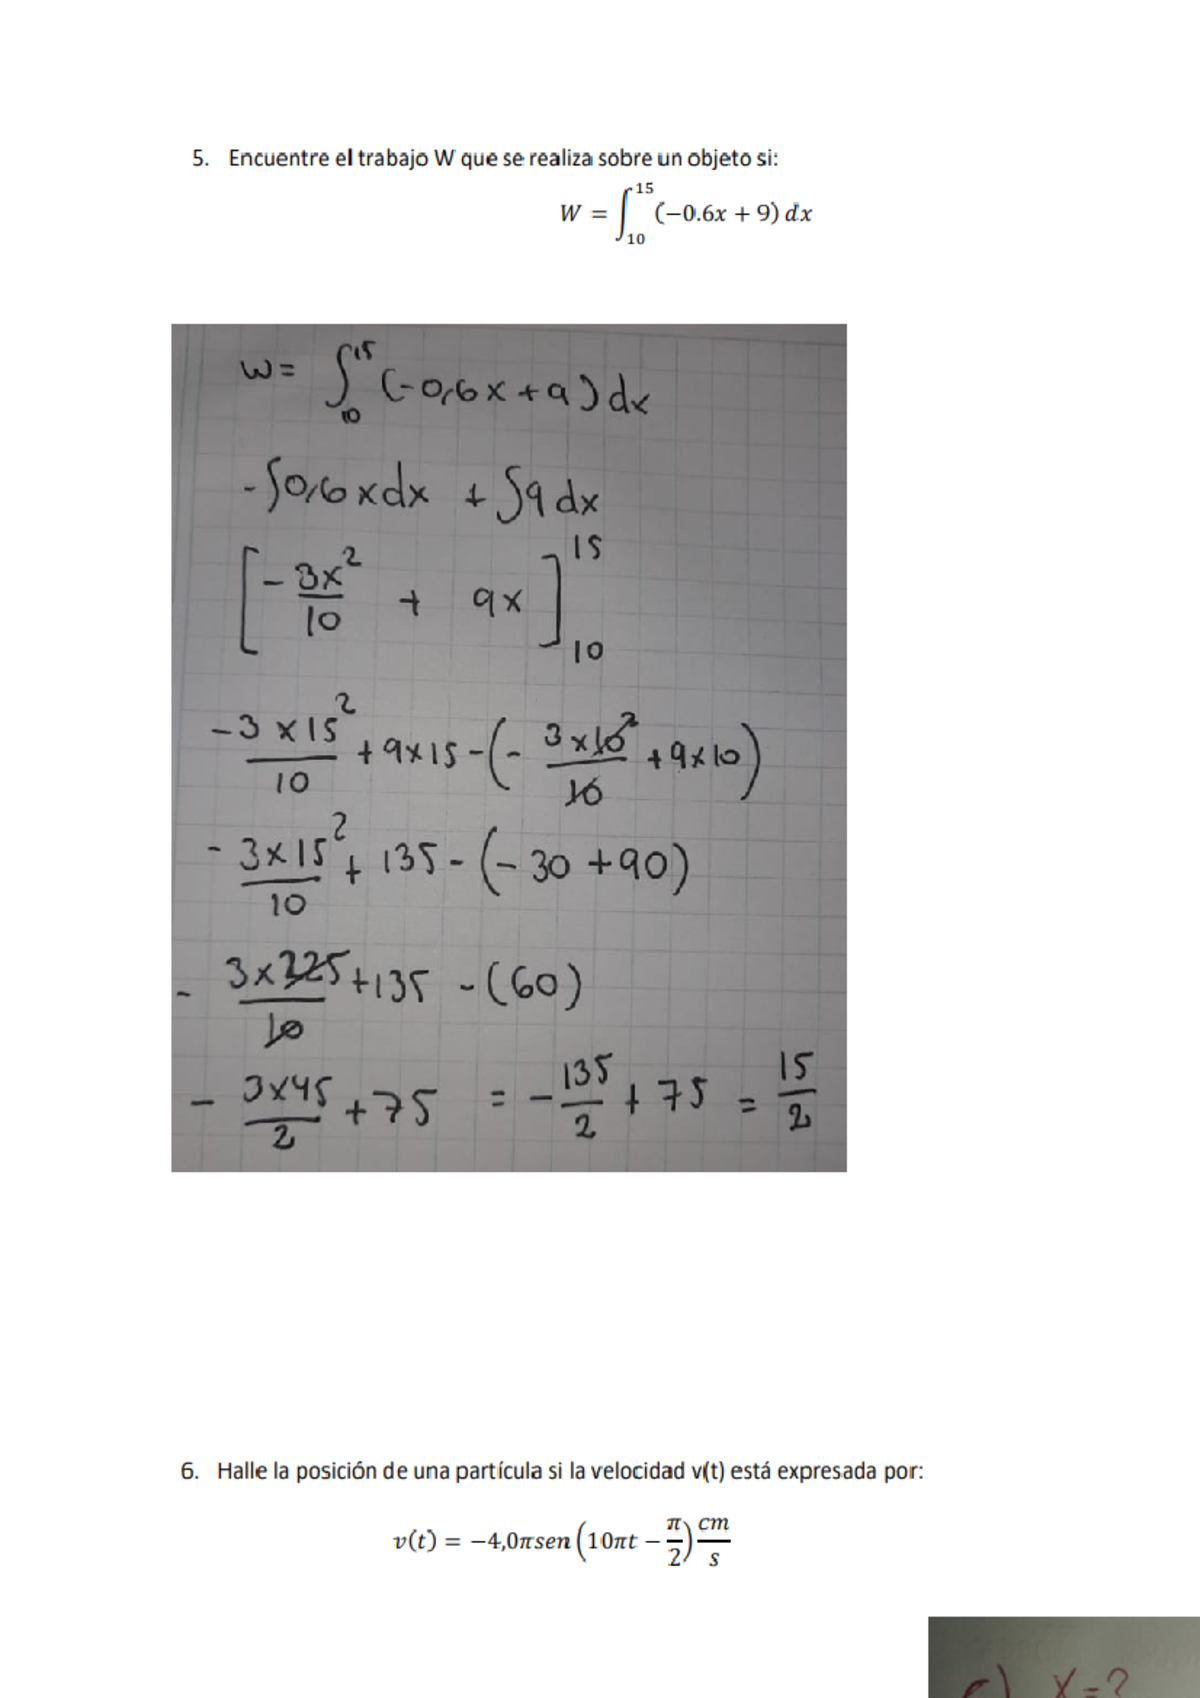 5. Encuentre el trabajo W que se realiza sobre un objeto si:
W = ∫₁₀¹⁵ (−0.6x + 9) dx
W = ∫₁₀¹⁵ (-0,6x + 9) dx
- ∫0,6xdx + ∫9dx
[- 3x²/10 + 9x]₁₀¹⁵
- 3 x 15²/10 + 9x15 - (- 3x10²/10 + 9x10)
- 3x15²/10 + 135 - (- 30 + 90)
- 3x225/10 + 135 - (60)
- 3x45/2 + 75 = - 135/2 + 75 = 15/2
6. Halle la posición de una partícula si la velocidad v(t) está expresada por:
v(t) = −4,0πsen (10πt − π/2) cm/s
c) x=?